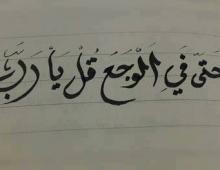 حتّى فَي الَوجَعَ قُل يَاْ رَبّ